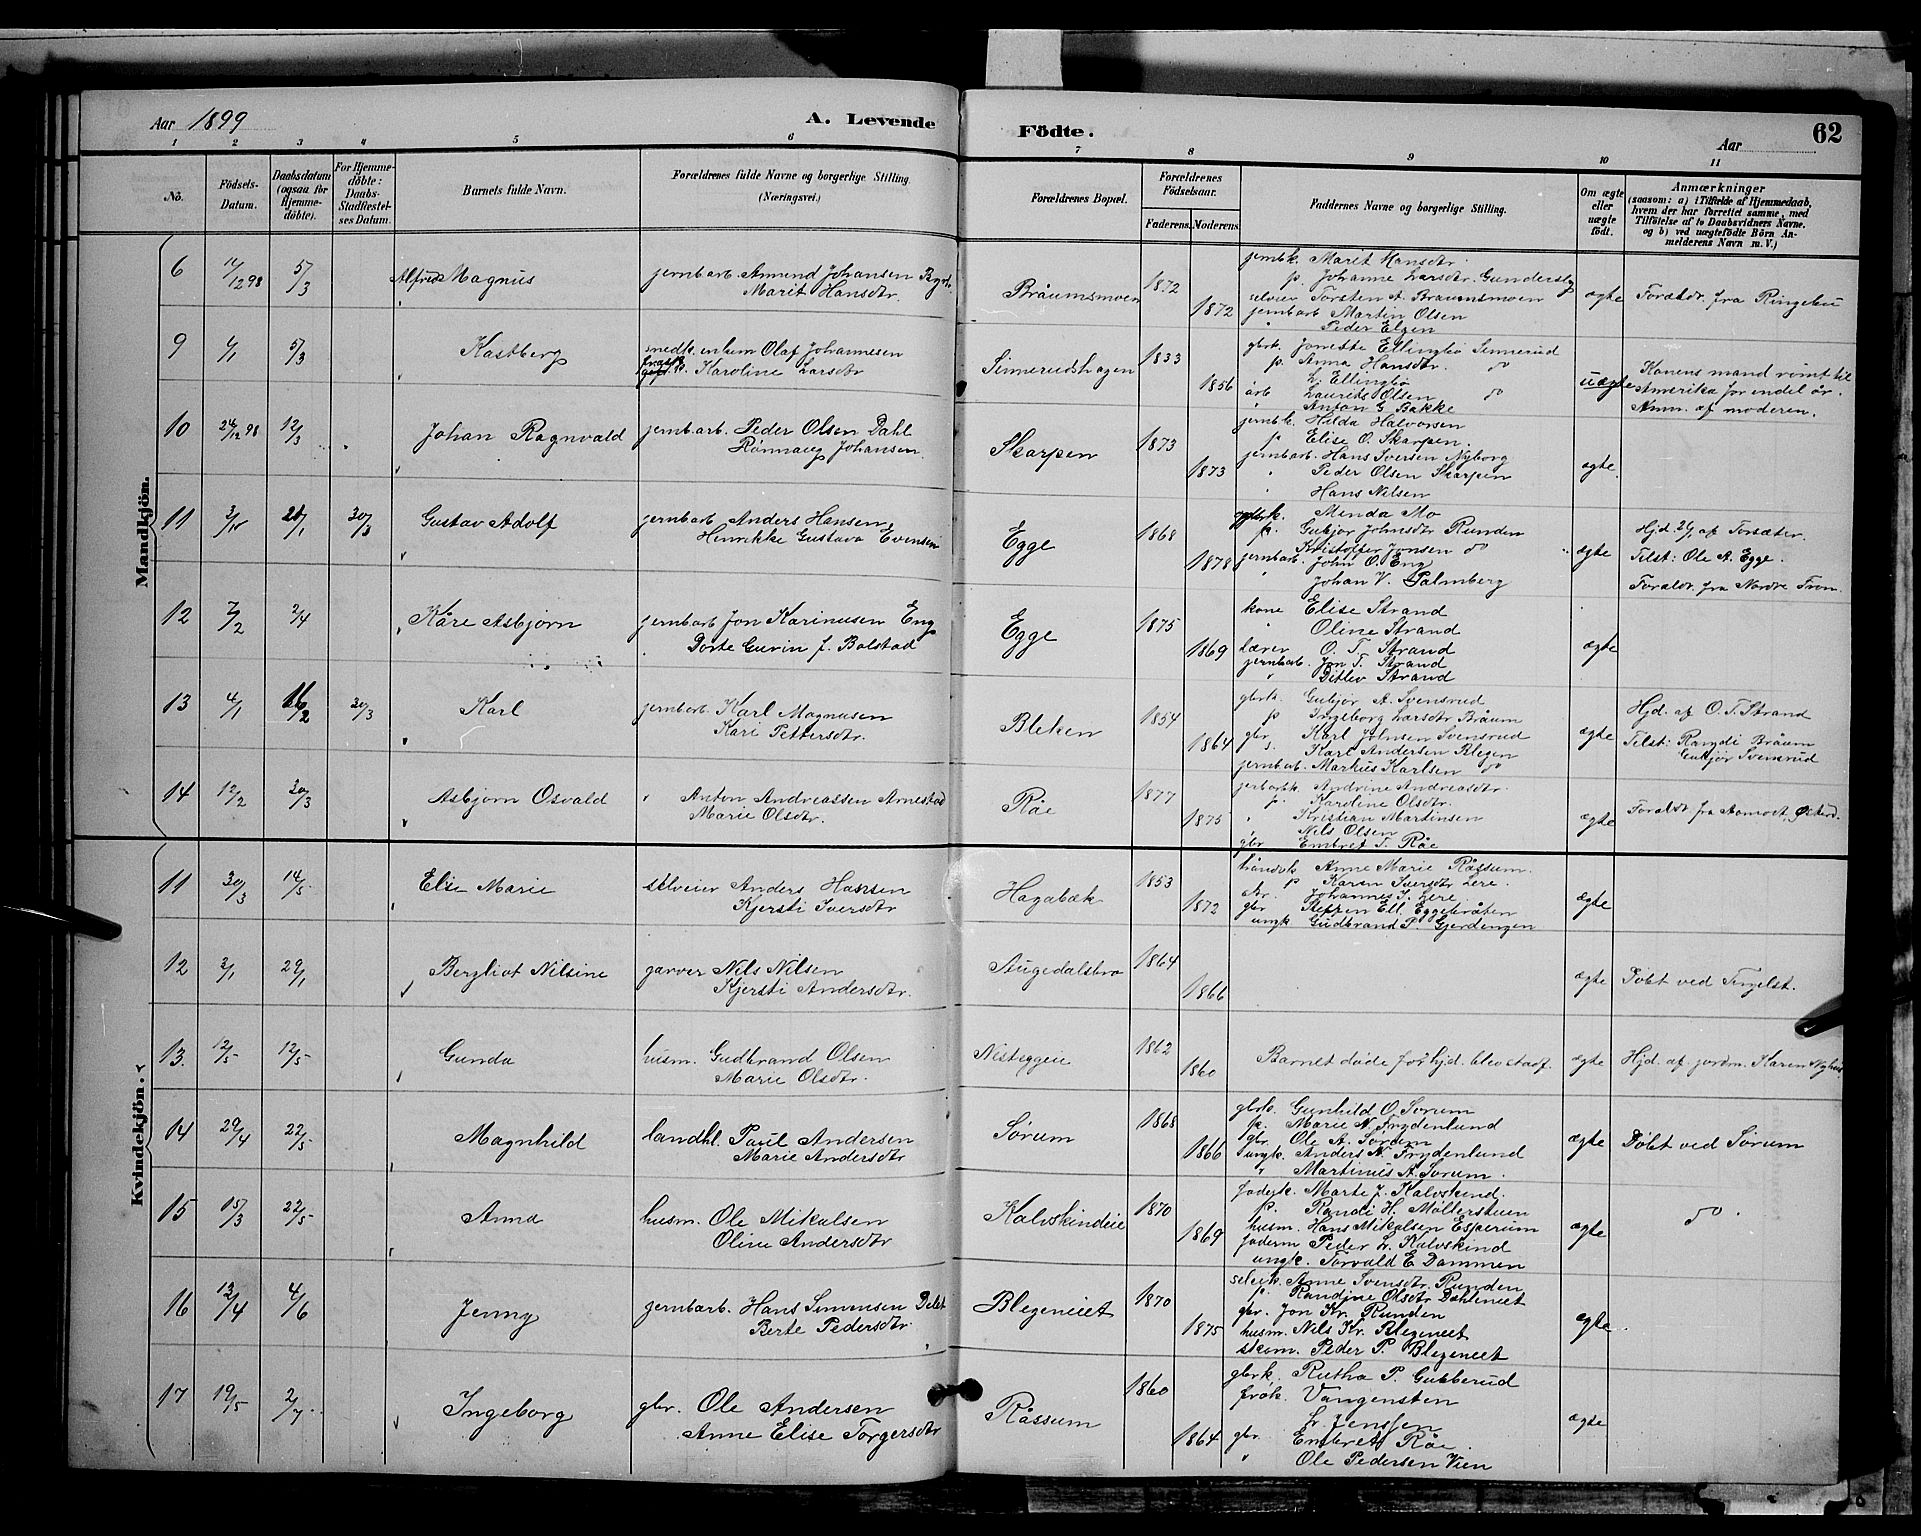 Aar 1899
A. Levende Födte.
Aar
62
1 2 3 4 5 6 7 8 9 10 11
No.
Födsels-Datum.
Daabsdatum (ogsaa for Hjemmedöbte).
For Hjemmedöbte: Daabs-Stadfestelses Datum.
Barnets fulde Navn.
Forældrenes fulde Navne og borgerlige Stilling (Næringsvei.)
Forældrenes Bopæl.
Forældrenes Födselsaar.
Faderens. Moderens.
Faddernes Navne og borgerlige Stilling.
Om ægte eller uægte födt.
Anmærkninger
(saasom: a) i Tilfælde af Hjemmedaab, hvem der har forrettet samme, med Tilföielse af to Daabsvidners Navne. og b) ved uægtefödte Börn Anmelderens Navn m. V.)
Mandkjön.
6 5/3 Alfred Magnus
jernbarb. Amund Johansen
Marit Hansdtr.
Bråumsmoen 1872 1872
jernbk. Marit Hansdtr.
p. Johanne Larsdtr.
selveier Torsten A. Braumsmoen
jernbarb Marten Olsen
Peder Elgen
ægte
Forældr. fra Ringebu
9 4/1 5/3 Kastberg
snedk. enkem Olaf Johannesen
Karoline Larsdtr
Sinnerudshagen 1833 1856
gbrk. Jonette Ellingbø Sinnerud
p. Anna Hansdtr. do
L. Ellingbø
arb Laurits Olsen do
Anton G Bakke
uægte
Konens mand römt til
Amerika for endel år.
Anm. af moderen.
10 24/12 98 12/3 Johan Ragnvald
jernbarb. Peder Olsen Dahl
Rönnaug Johansen
Skarpen 1873 1873
jernbk. Hilda Halvorsen
p Elise O. Skarpen.
jernbarb. Hans Iversen Nyborg
" Peder Olsen Skarpen
" Hans Nilsen
ægte.
11 21/1 30/3 Gustav Adolf
jernbarb Anders Hansen,
Henrikke Gustava Evensen
Egge 1868 1878
Menda Mo
p. Gubjør Johnsdtr Runden
Kristoffer Jonsen do
jernbarb. John O. Eng
" Johan V. Palmberg
ægte
Hjd. af Forsæter.
Tilst: Ole A. Egge.
Forældr. fra Nordre Fron.
12 7/2 2/4 Kåre Asbjørn
jernbarb Jon Karinusen Eng
Dorte Gurin J. Bolstad
Egge 1875 1869
kone Elise Strand
" Oline Strand
lærer O. T. Strand
jernbarb. Jon T. Strand
" Ditlev Strand
ægte
13 4/1 30/3 Karl
jernbarb. Karl Magnusen
Kari Pettersdtr.
Bleken 1854 1864
gbrk. Gubjør A. Svensrud
p Ingeborg Larsdtr Bråum
gbr. Karl Johnsen Svensrud
s. Karl Andersen Blegen
jernbarb. Markus Karlsen do
ægte
Hjd. af O. T. Strand
Tilst: Randi Bråum
Gubjør Svensrud
14 12/2 30/3 Asbjørn Osvald
" Anton Andreassen Arnestad
Marie Olsdtr.
Råe 1877 1875
jerbarbk. Andrine Andreasdtr.
p. Karoline Olsdtr.
" Kristian Martinsen
Nils Olsen
gbr Embret T. Råe
ægte
Forældr. fra Aamodt, Østerd.
Kvindekjön.
11 30/3 14/5 Elise Marie
selveier Anders Hansen
Kjersti Iversdtr
Hagabæk 1853 1872
Anne Marie Råssum.
p Karen Iversdtr Lere.
Johannes I. Lere
gbr Steffen Ell. Eggebråten
ungk Gudbrand P. Gjerdengen
ægte
12 29/1 Bergliot Nilsine
garver Nils Nilsen
Kjersti Andersdtr.
Augedalsbro 1864 1866
ægte
Döbt ved Tingelst.
13. 12/5 12/5 Gunda
husm. Gudbrand Olsen
Marie Olsdtr.
Nisteggeie 1862 1860
Barnet döde för hjd. blev stadf.
ægte
Hjd. af jordm. Karen Nyhus
14 29/4 22/5 Magnhild
landhl. Paul Andersen
Marie Andersdtr
Sørum 1868 1866
gbrk. Gunhild O. Sørum
p. Marie N. Frydenlund
gbr. Ole A. Sørum
ungk. Anders N. Frydenlund
" Martinus A. Sørum.
ægte
Döbt ved Sørum
15 15/3 22/5 Anna
husm. Ole Mikalsen
Oline Andersdtr
Kalvskindeie 1870 1869
föderk. Marte J. Kalvskind.
p. Randi H. Möllerstuen
husm. Hans Mikalsen Esperum
föderm Peder L. Kalvskind
ungk. Torvald E Dammen
ægte
do
16 12/4 4/6 Jenny
jernbarb. Hans Simensen Delet
Berte Pedersdtr.
Blegeneiet 1870 1875
selvk. Anne Svensdtr. Runden
p. Randine Olsdtr Dæhleneiet
gbr. Jon Kr. Runden
husm. Nils Kr. Blegeneiet
skom. Peder P. Blegeneiet
ægte
17 19/5 2/7 Ingeborg
gbr. Ole Andersen
Anne Elise Torgersdtr
Råssum 1860 1864
gbrk. Rutha P. Gubberud
frøk. Vangensten
L. Jenssen
gbr Embret Råe
" Ole Pedersen Vien
ægte